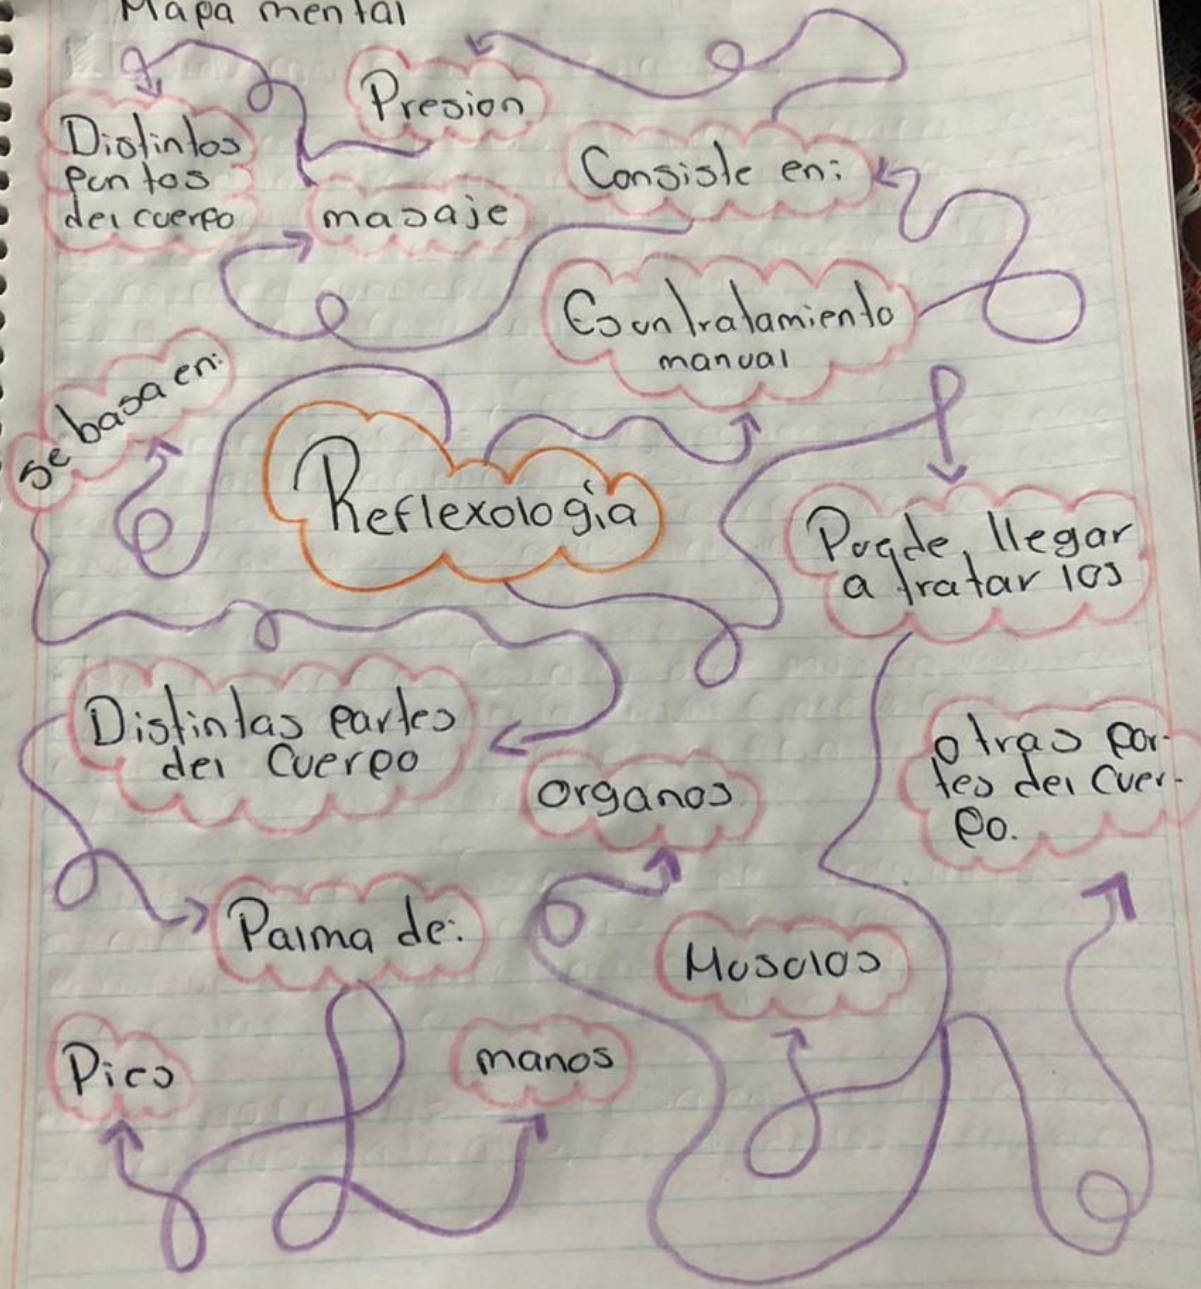 Mapa mental
Presion
Distintos
puntos
del cuerpo
masaje
Consiste en:
Es un tratamiento
manual
se basa en:
Reflexología
Puede, llegar
a tratar los
Distintas partes
del Cuerpo
otras par-
tes del cuer-
po.
organos
Palma de:
Musculos
Pies
manos